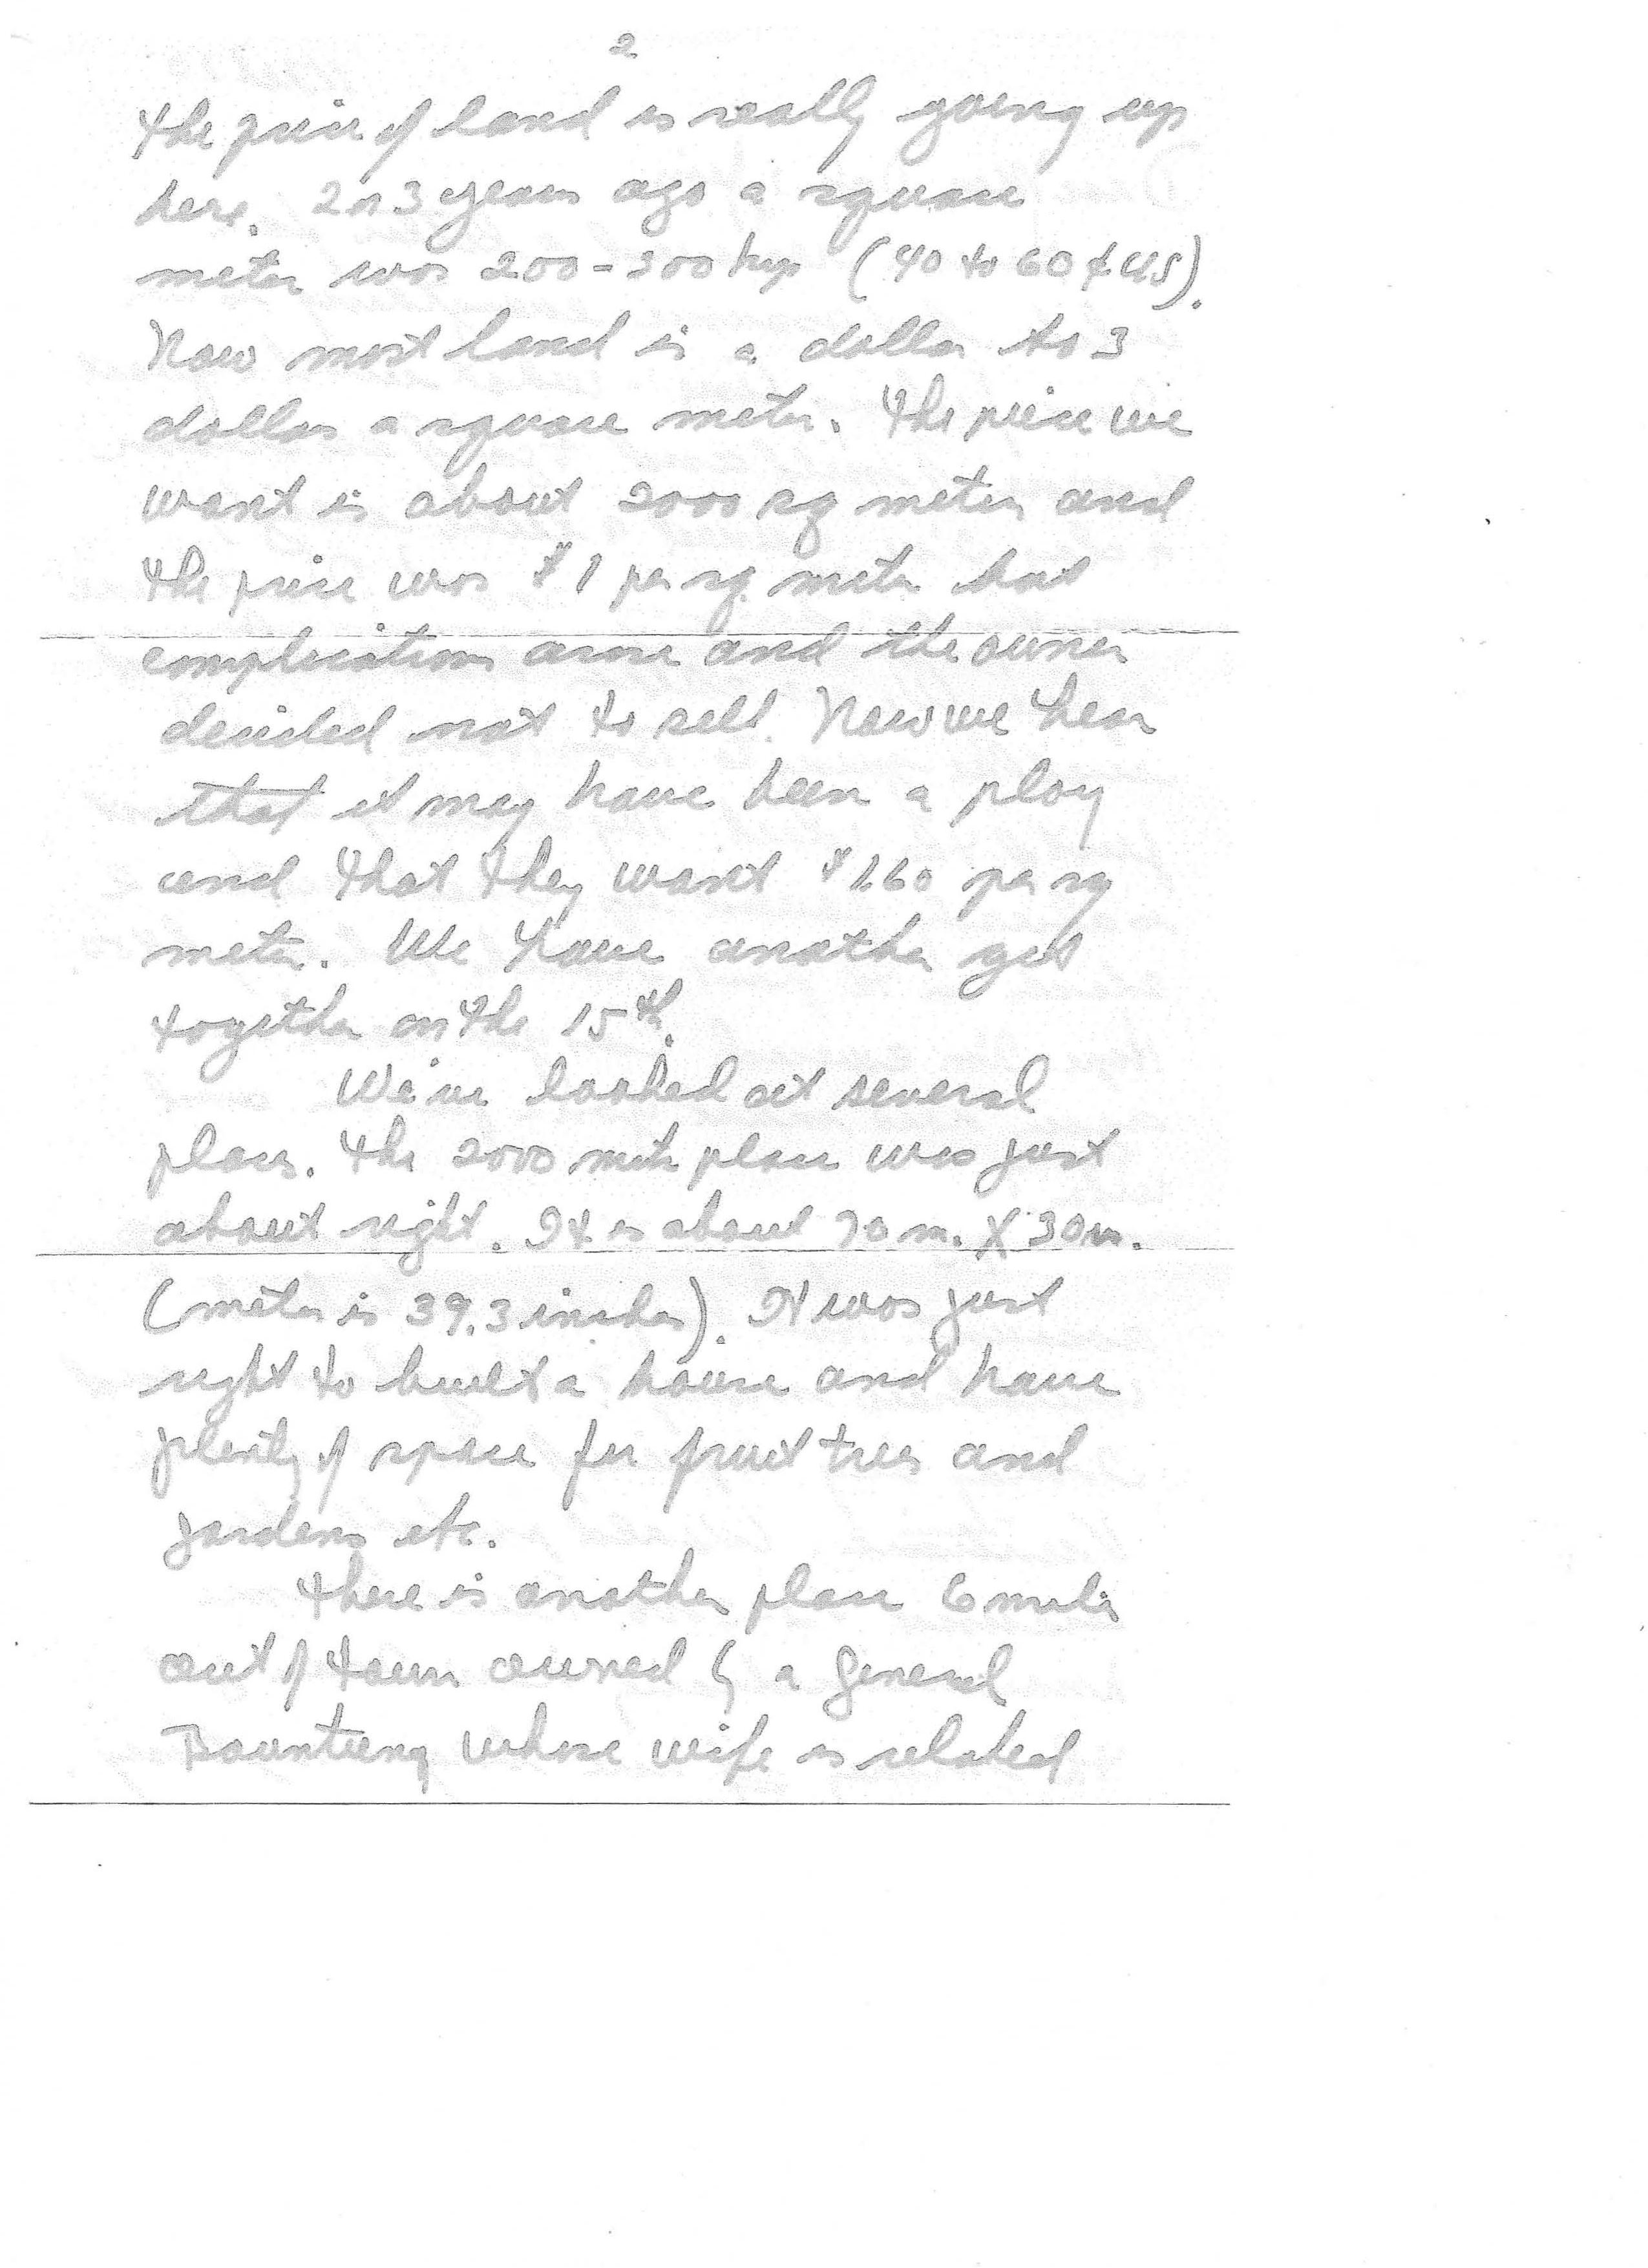 2
The price of land is really going up
here. 2 or 3 years ago a square
meter was 200-300 kip (40 to 60 ¢ US).
Now most land is a dollar to 3
dollars a square meter. The piece we
want is about 2000 sq meters and
the price was $1 per sq. meter but
complications arose and the owner
decided not to sell. Now we hear
that it may have been a ploy
and that they want $1.60 per sq
meter. We have another get
together on the 15th.
We've looked at several
places. The 2000 meter place was just
about right. It is about 70 m. X 30 m.
(meter is 39.3 inches). It was just
right to built a house and have
plenty of space for fruit trees and
gardens etc.
There is another place 6 miles
out of town owned by a General
Bounteng whose wife is related